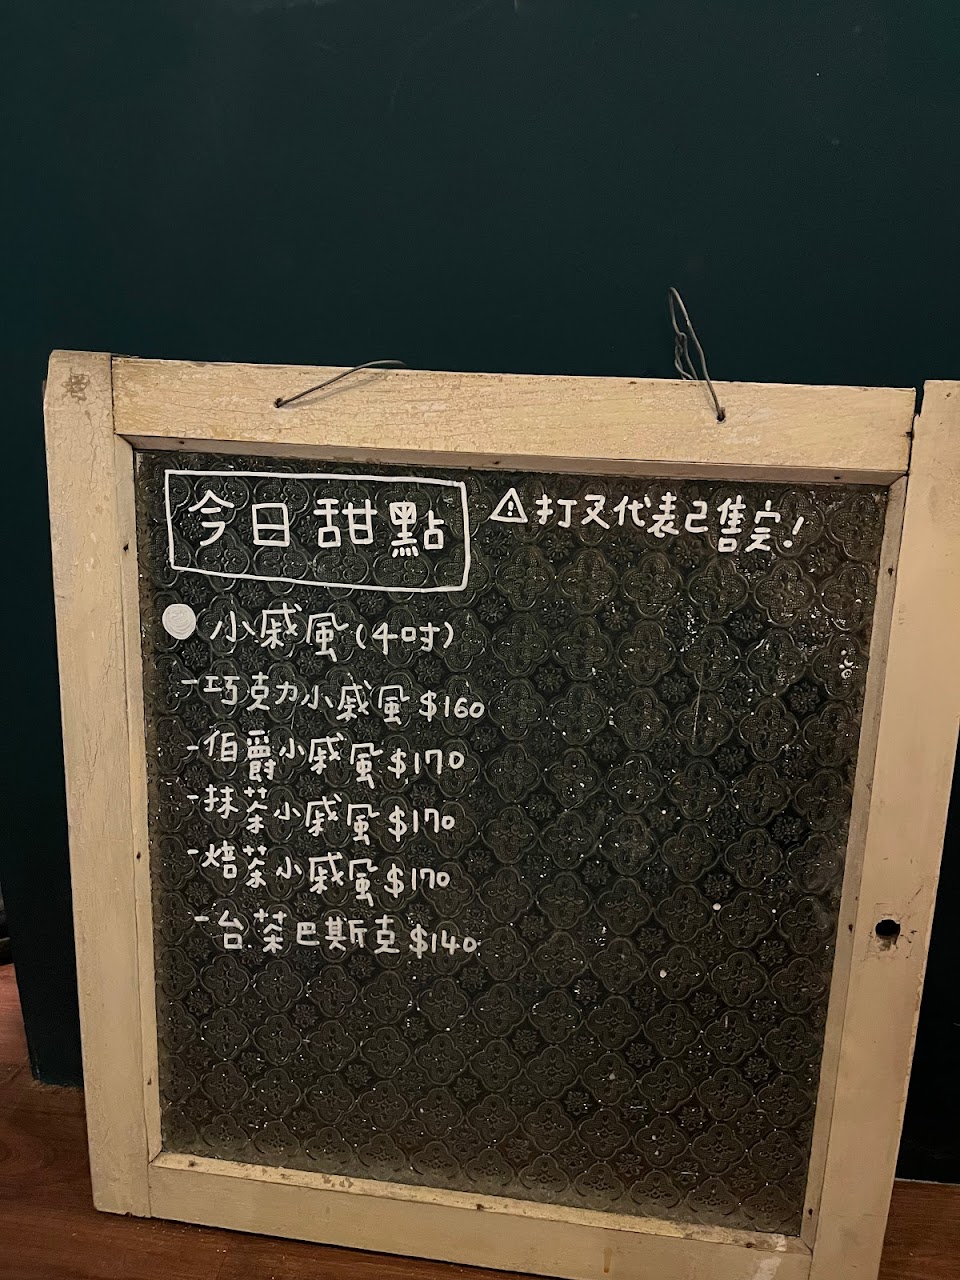 今日甜點
⚠打叉代表已售完!
小戚風(4吋)
-巧克力小戚風 $160
-伯爵小戚風 $170
-抹茶小戚風 $170
-焙茶小戚風 $170
-台茶巴斯克 $140